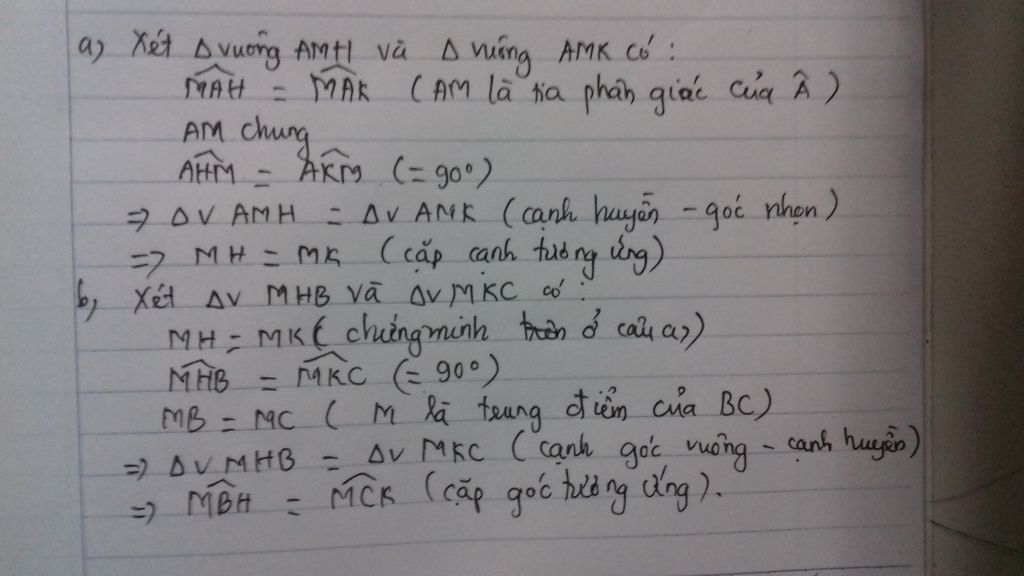 a, Xét Δ vuông AMH và Δ vuông AMK có :
M̂AH = M̂AK ( AM là tia phân giác của Â )
AM chung
ÂHM = ÂKM (= 90°)
=> ΔV AMH = ΔV AMK ( cạnh huyền - góc nhọn )
=> MH = MK ( cặp cạnh tương ứng )
b, Xét ΔV MHB Và ΔV MKC có :
MH = MK ( chứng minh trên ở câu a, )
M̂HB = M̂KC (= 90°)
MB = MC ( M là trung điểm của BC )
=> ΔV MHB = ΔV MKC ( cạnh góc vuông - cạnh huyền )
=> M̂BH = M̂CK ( cặp góc tương ứng ).